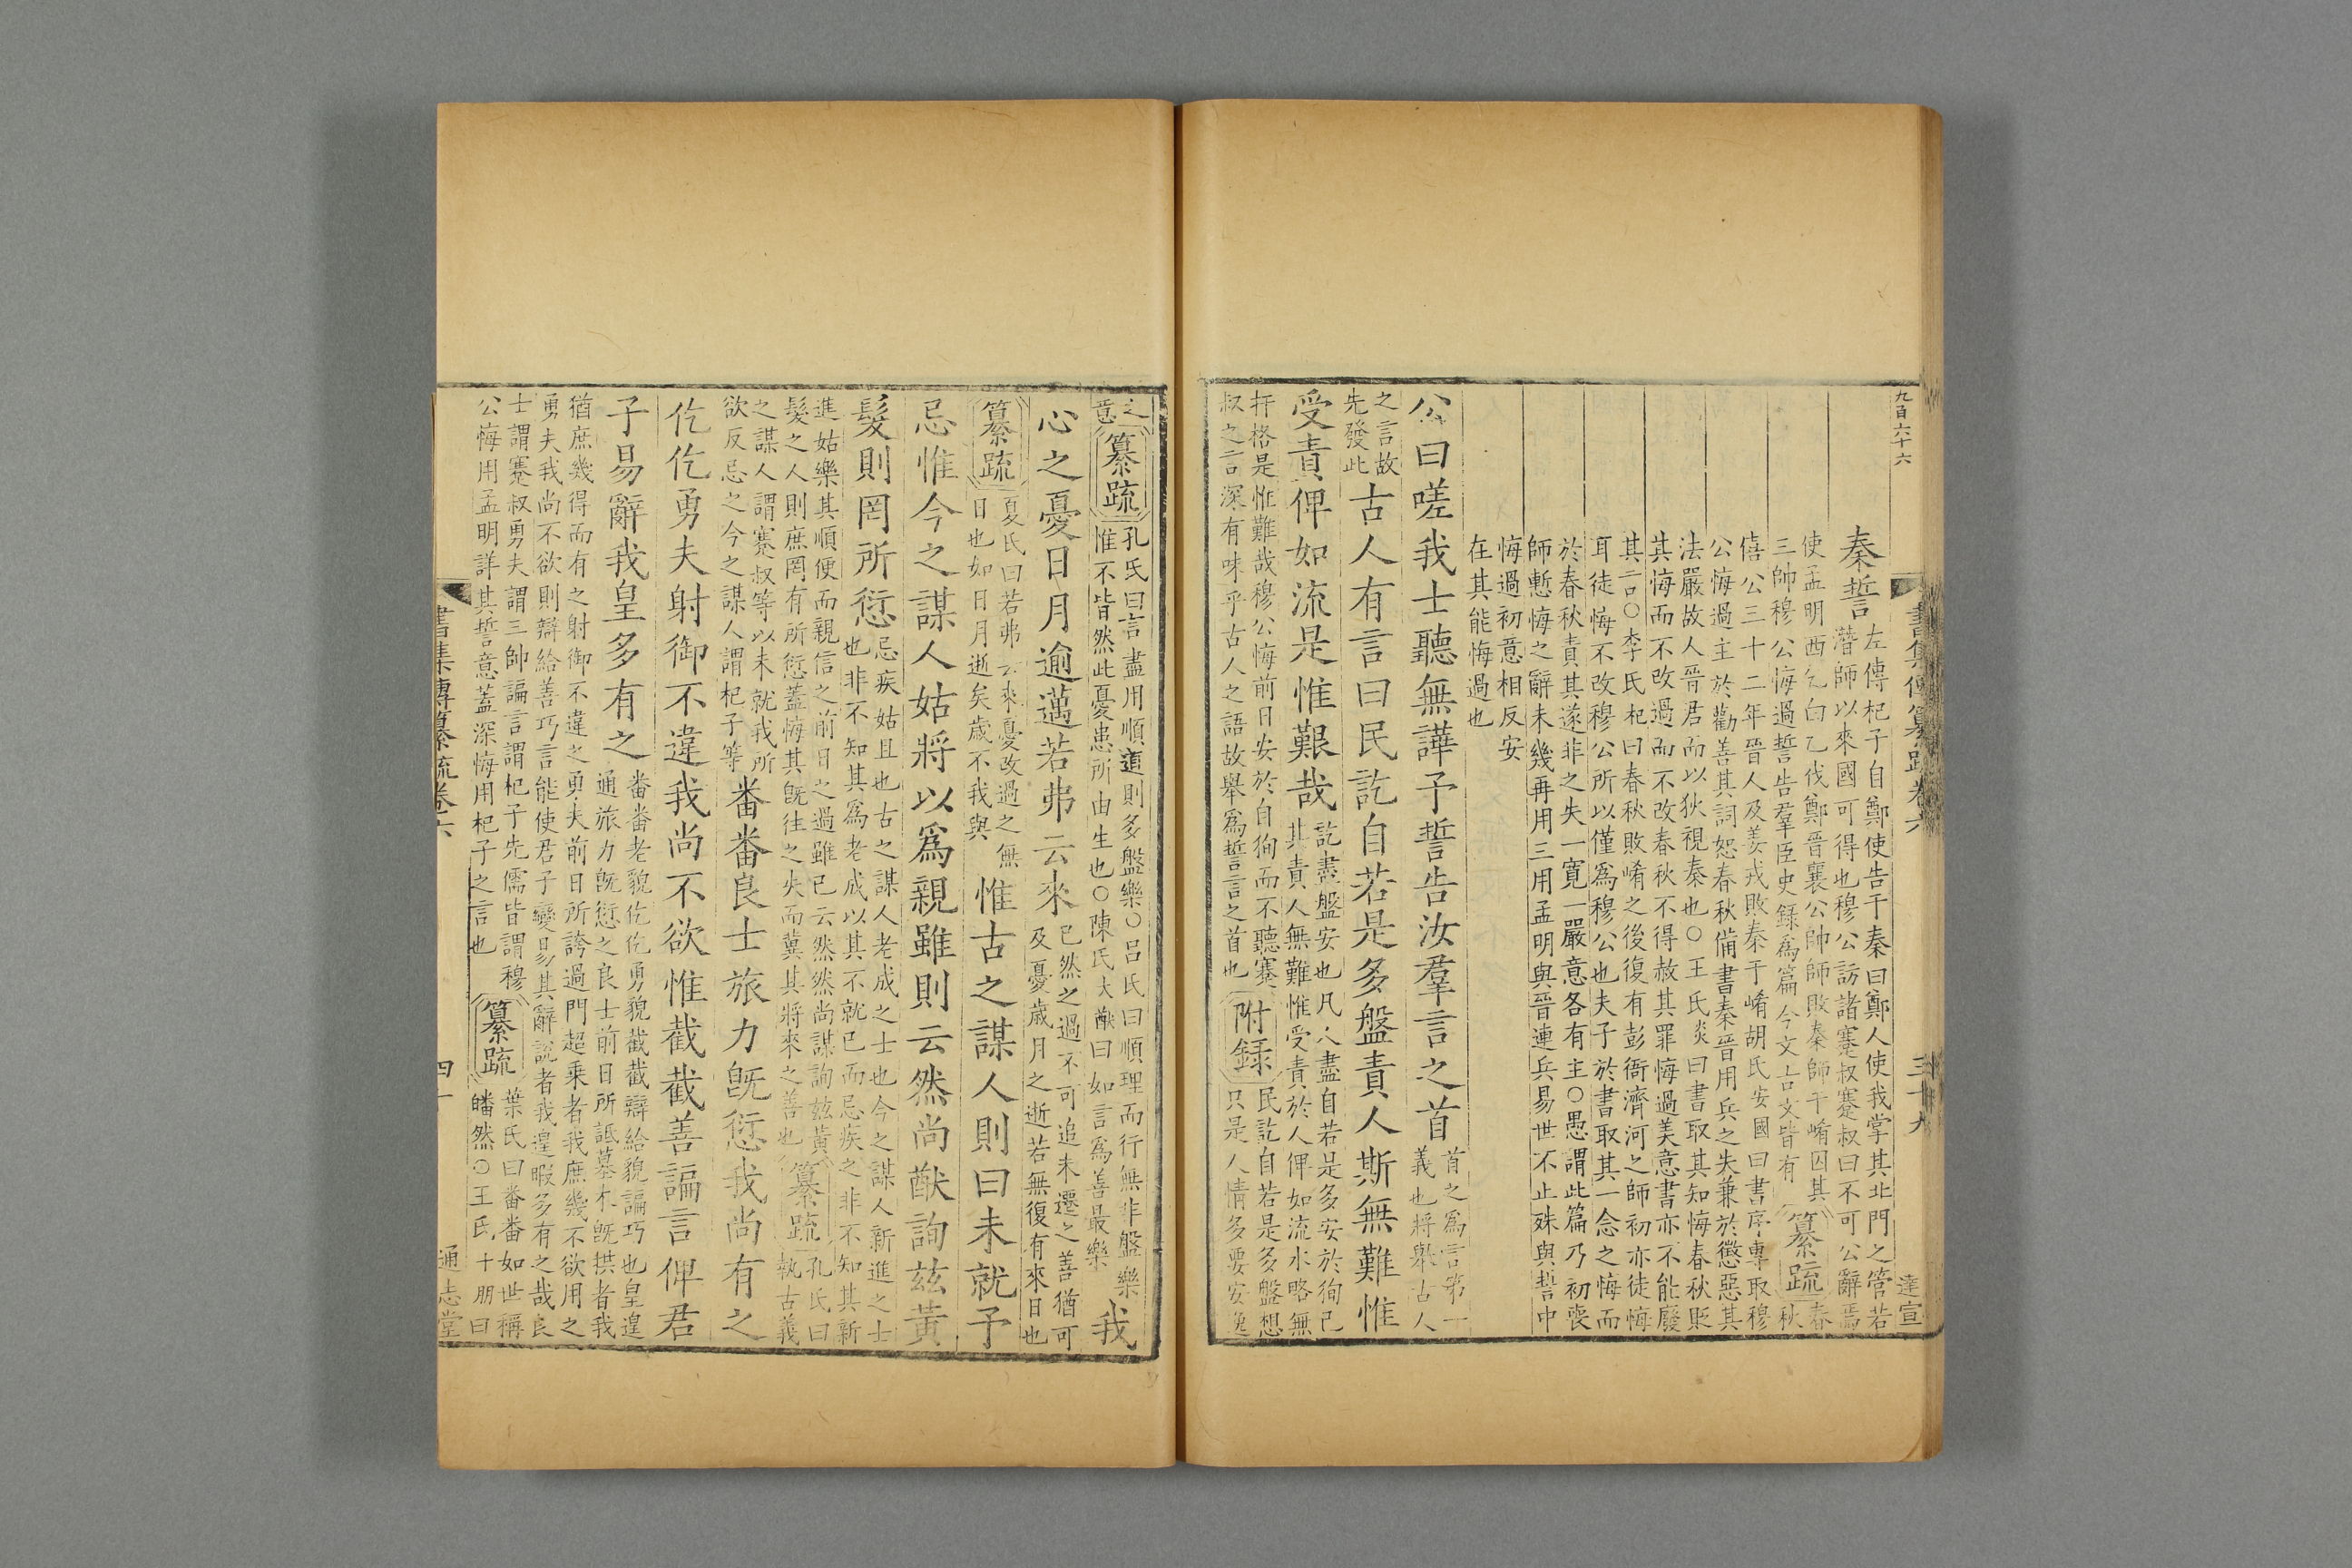 九百六十六
書集傳纂疏卷六
三十九
達宣
秦誓
左傳杞子自鄭使告于秦曰鄭人使我掌其北門之管若
潛師以來國可得也穆公訪諸蹇叔蹇叔曰不可公辭焉
使孟明西乞白乙伐鄭晉襄公帥師敗秦師于崤囚其
三帥穆公悔過誓告羣臣史録爲篇今文古文皆有
纂疏
春
秋
僖公三十二年晉人及姜戎敗秦于崤胡氏安國曰書序專取穆
公悔過主於勸善其詞恕春秋備書秦晉用兵之失兼於懲惡其
法嚴故人晉君而以狄視秦也○王氏炎曰書取其知悔春秋貶
其悔而不改過而不改春秋不得赦其罪悔過美意書亦不能廢
其言○李氏杞曰春秋敗崤之後復有彭衙濟河之師初亦徒悔
耳徒悔不改穆公所以僅爲穆公也夫子於書取其一念之悔而
於春秋責其遂非之失一寛一嚴意各有主○愚謂此篇乃初喪
師慙悔之辭未幾再用三用孟明與晉連兵易世不止殊與誓中
悔過初意相反安
在其能悔過也
公曰嗟我士聽無譁予誓告汝羣言之首
首之爲言第一
義也將舉古人
之言故
先發此
古人有言曰民訖自若是多盤責人斯無難惟
受責俾如流是惟艱哉
訖盡盤安也凡人盡自若是多安於徇己
其責人無難惟受責於人俾如流水略無
扞格是惟難哉穆公悔前日安於自徇而不聽蹇
叔之言深有味乎古人之語故舉爲誓言之首也
附録
民訖自若是多盤想
只是人情多要安逸
之
意
纂疏
孔氏曰言盡用順道則多盤樂○呂氏曰順理而行無非盤樂
惟不皆然此憂患所由生也○陳氏大猷曰如言爲善最樂
我
心之憂日月逾邁若弗云來
已然之過不可追未遷之善猶可
及憂歲月之逝若無復有來日也
纂疏
夏氏曰若弗云來憂改過之無
日也如日月逝矣歲不我與
惟古之謀人則曰未就予
忌惟今之謀人姑將以爲親雖則云然尚猷詢茲黃
髮則罔所愆
忌疾姑且也古之謀人老成之士也今之謀人新進之士
也非不知其爲老成以其不就已而忌疾之非不知其新
進姑樂其順便而親信之前日之過雖已云然然尚謀詢茲黃
髮之人則庶罔有所愆蓋悔其旣往之失而冀其將來之善也
纂疏
孔氏曰
執古義
之謀人謂蹇叔等以未就我所
欲反忌之今之謀人謂杞子等
番番良士旅力旣愆我尚有之
仡仡勇夫射御不違我尚不欲惟截截善諞言俾君
子易辭我皇多有之
番番老貌仡仡勇貌截截辯給貌諞巧也皇遑
通旅力旣愆之良士前日所詆墓木旣拱者我
猶庶幾得而有之射御不違之勇夫前日所誇過門超乗者我庶幾不欲用之
勇夫我尚不欲則辯給善巧言能使君子變易其辭說者我遑暇多有之哉良
士謂蹇叔勇夫謂三帥諞言謂杞子先儒皆謂穆
公悔用孟明詳其誓意蓋深悔用杞子之言也
纂疏
葉氏曰番番如世稱
皤然○王氏十朋曰
書集傳纂疏卷六
四十
通志堂